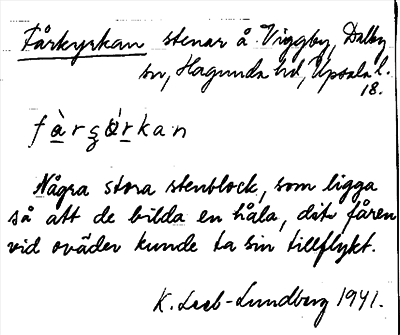 Fårkyrkan stenar å Viggby, Dalby
sn, Hagunda hd, Upsala l.
18.
fàrʒó̤rkan
Några stora stenblock, som ligga
så att de bilda en håla, dit fåren
vid oväder kunde ta sin tillflykt.
K. Leeb-Lundberg 1941.